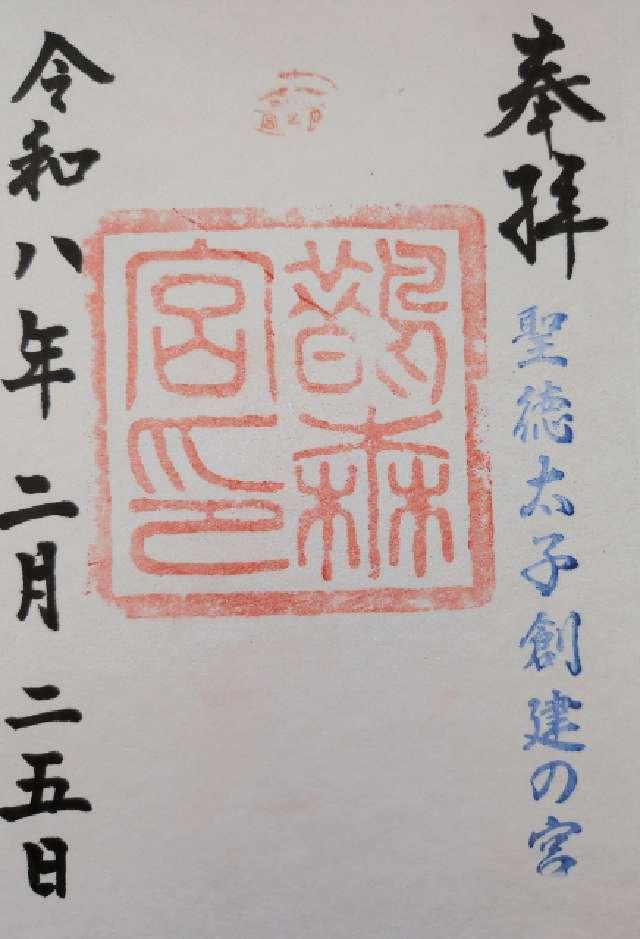 奉拝
聖徳太子創建の宮
鵲森
宮印
令和八年二月二五日